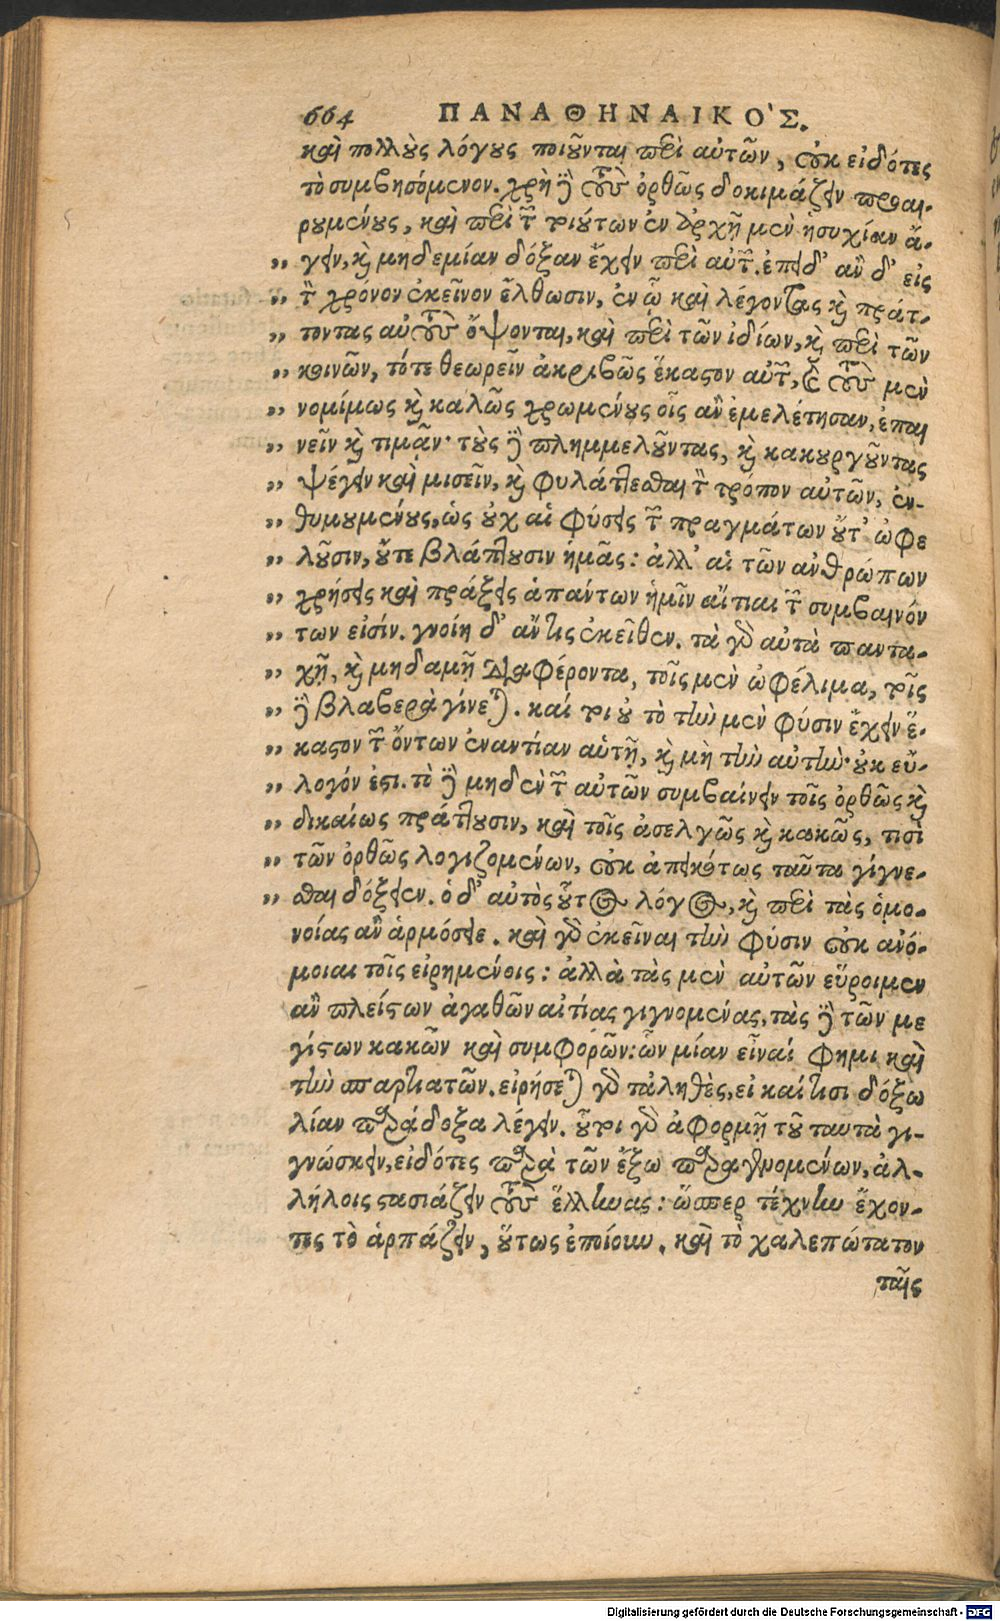 664 ΠΑΝΑΘΗΝΑΙΚΟ'Σ.
καὶ πολλοὺς λόγους ποιοῦνται περὶ αὐτῶν, οὐκ εἰδότες
τὸ συμβησόμενον. χρὴ δὲ τοὺς ὀρθῶς δοκιμάζειν προαι-
ρουμένους, καὶ περὶ τῶν τοιούτων ἐν ἀρχῇ μὲν ἡσυχίαν ἄ-
„ γειν, καὶ μηδεμίαν δόξαν ἔχειν περὶ αὐτῶν. ἐπειδ' ἂν δ' εἰς
„ τὸν χρόνον ἐκεῖνον ἔλθωσιν, ἐν ᾧ καὶ λέγοντας καὶ πράτ-
„ τοντας αὐτοὺς ὄψονται, καὶ περὶ τῶν ἰδίων, καὶ περὶ τῶν
„ κοινῶν, τότε θεωρεῖν ἀκριβῶς ἕκαστον αὐτῶν, καὶ τοὺς μὲν
„ νομίμως καὶ καλῶς χρωμένους οἷς ἂν ἐμελέτησαν, ἐπαι
„ νεῖν καὶ τιμᾷν· τοὺς δὲ πλημμελοῦντας, καὶ κακουργοῦντας
„ ψέγειν καὶ μισεῖν, καὶ φυλάττεσθαι τὸν τρόπον αὐτῶν, ἐν-
„ θυμουμένους, ὡς οὐχ αἱ φύσεις τῶν πραγμάτων οὔτ' ὠφε
„ λοῦσιν, οὔτε βλάπτουσιν ἡμᾶς: ἀλλ' αἱ τῶν ἀνθρώπων
„ χρήσεις καὶ πράξεις ἁπάντων ἡμῖν αἴτιαι τῶν συμβαινόν
„ των εἰσίν. γνοίη δ' ἄν τις ἐκεῖθεν. τὰ γὰρ αὐτὰ παντα-
„ χῇ, καὶ μηδαμῇ διαφέροντα, τοῖς μὲν ὠφέλιμα, τοῖς
„ δὲ βλαβερὰ γίνεται. καί τοι οὐ τὸ τὴν μὲν φύσιν ἔχειν ἕ-
„ καστον τῶν ὄντων ἐναντίαν αὑτῇ, καὶ μὴ τὴν αὐτὴν· οὐκ εὔ-
„ λογόν ἐστι. τὸ δὲ μηδὲν τῶν αὐτῶν συμβαίνειν τοῖς ὀρθῶς καὶ
„ δικαίως πράττουσιν, καὶ τοῖς ἀσελγῶς καὶ κακῶς, τισὶ
„ τῶν ὀρθῶς λογιζομένων, οὐκ ἀπεικότως ταῦτα γίγνε-
„ σθαι δόξειεν. ὁ δ' αὐτὸς οὗτος λόγος, καὶ περὶ τὰς ὁμο-
νοίας ἂν ἁρμόσειε. καὶ γὰρ ἐκεῖναι τὴν φύσιν οὐκ ἀνό-
μοιαι τοῖς εἰρημένοις: ἀλλὰ τὰς μὲν αὐτῶν εὕροιμεν
ἂν πλείστων ἀγαθῶν αἰτίας γιγνομένας, τὰς δὲ τῶν με
γίστων κακῶν καὶ συμφορῶν: ὧν μίαν εἶναί φημι καὶ
τὴν σπαρτιατῶν. εἰρήσεται γὰρ τἀληθὲς, εἰ καί τισι δόξω
λίαν παράδοξα λέγειν. οὗτοι γὰρ ἀφορμῇ τοῦ ταυτὰ γι-
γνώσκειν, εἰδότες παρὰ τῶν ἔξω παραγενομένων, ἀλ-
λήλοις στασιάζειν τοὺς ἕλληνας: ὥσπερ τέχνην ἔχον-
τες τὸ ἁρπάζειν, οὕτως ἐποίουν. καὶ τὸ χαλεπώτατον
ταῖς
Digitalisierung gefördert durch die Deutsche Forschungsgemeinschaft - DFG